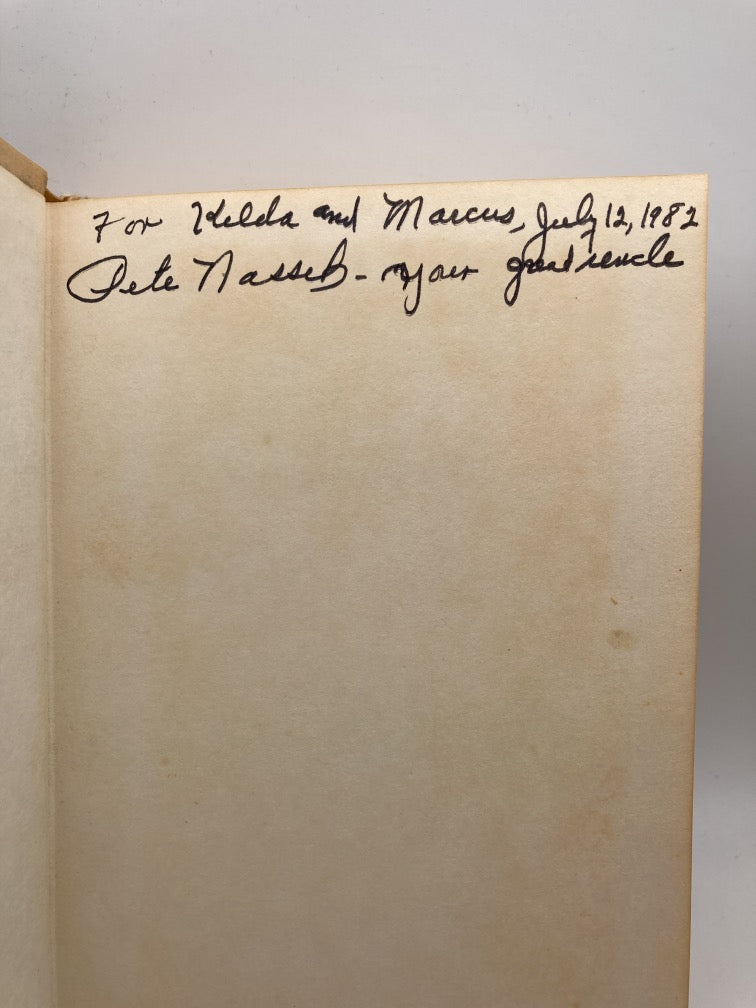 For Kelda and Marcus, July 12, 1982
Pete Nasseb - your great uncle